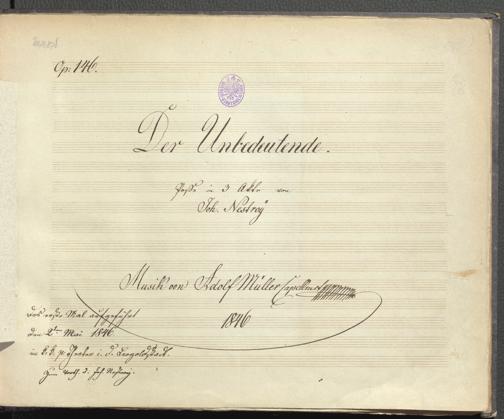 Op: 146.
Der Unbedeutende.
Posse in 3 Akte von
Joh. Nestroy
Musik von Adolf Müller Capellmst
1846
Das erste Mal aufgeführt
den 2ten Mai 1846.
im k. k. p. Theater i. d. Leopoldstadt.
Zum